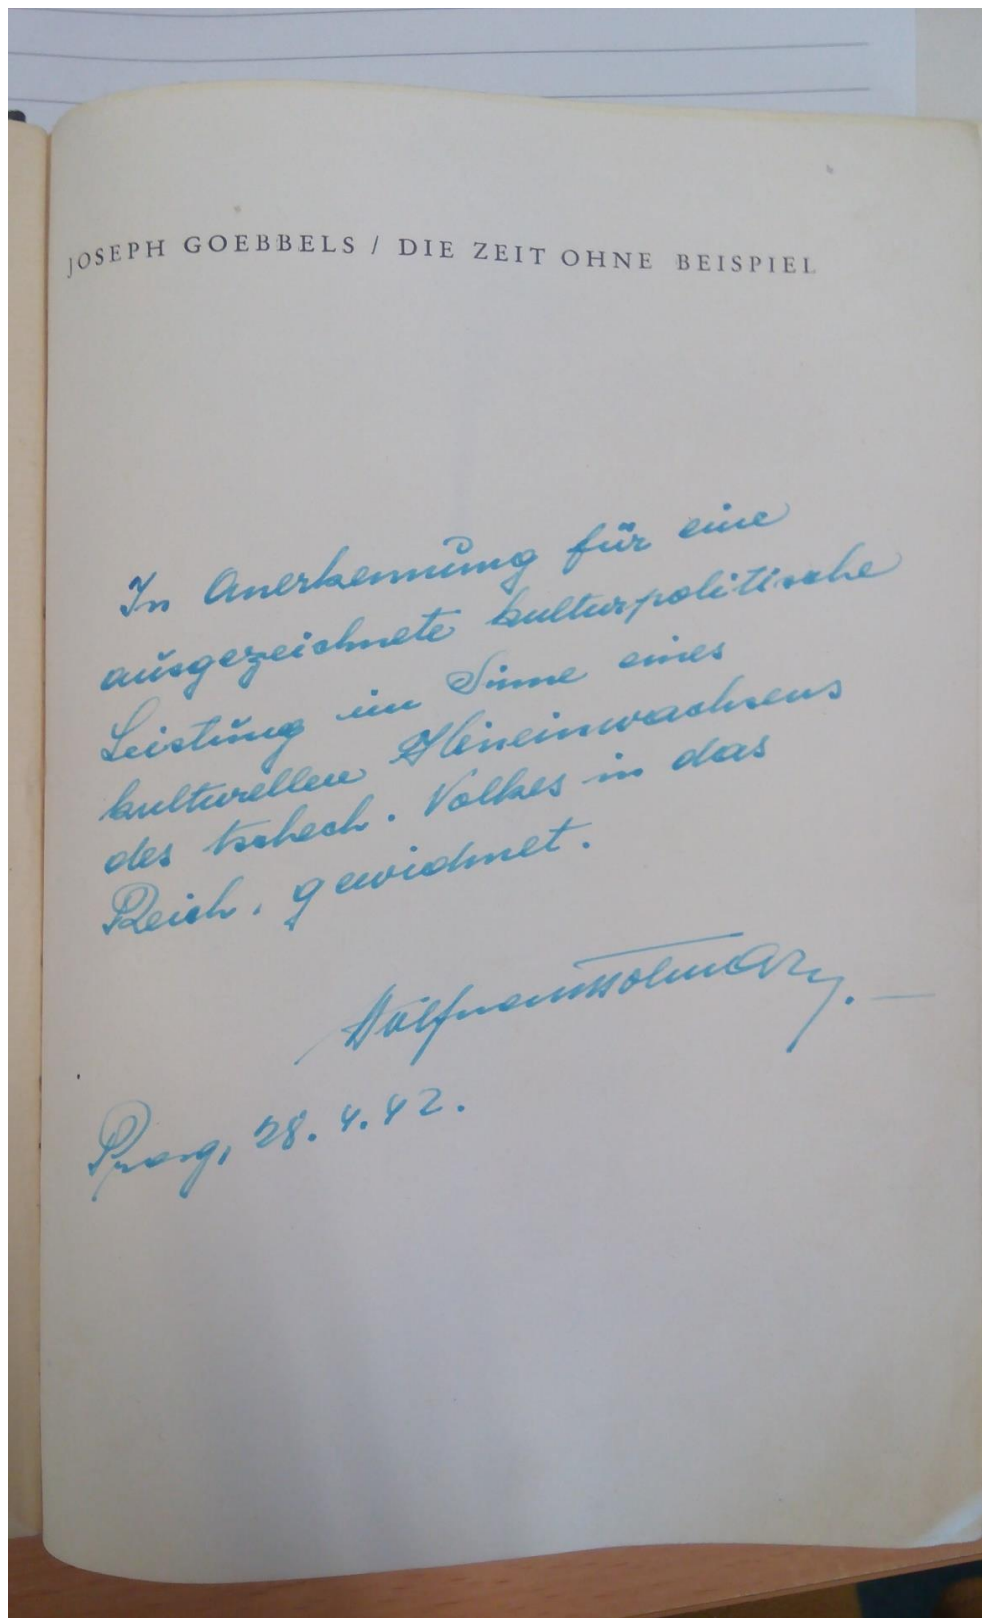 JOSEPH GOEBBELS / DIE ZEIT OHNE BEISPIEL
In Anerkennung für eine
ausgezeichnete kulturpolitische
Leistung im Sinne eines
kulturellen Hineinwachsens
des tschech. Volkes in das
Reich, gewidmet.
Prag, 28.4.42.